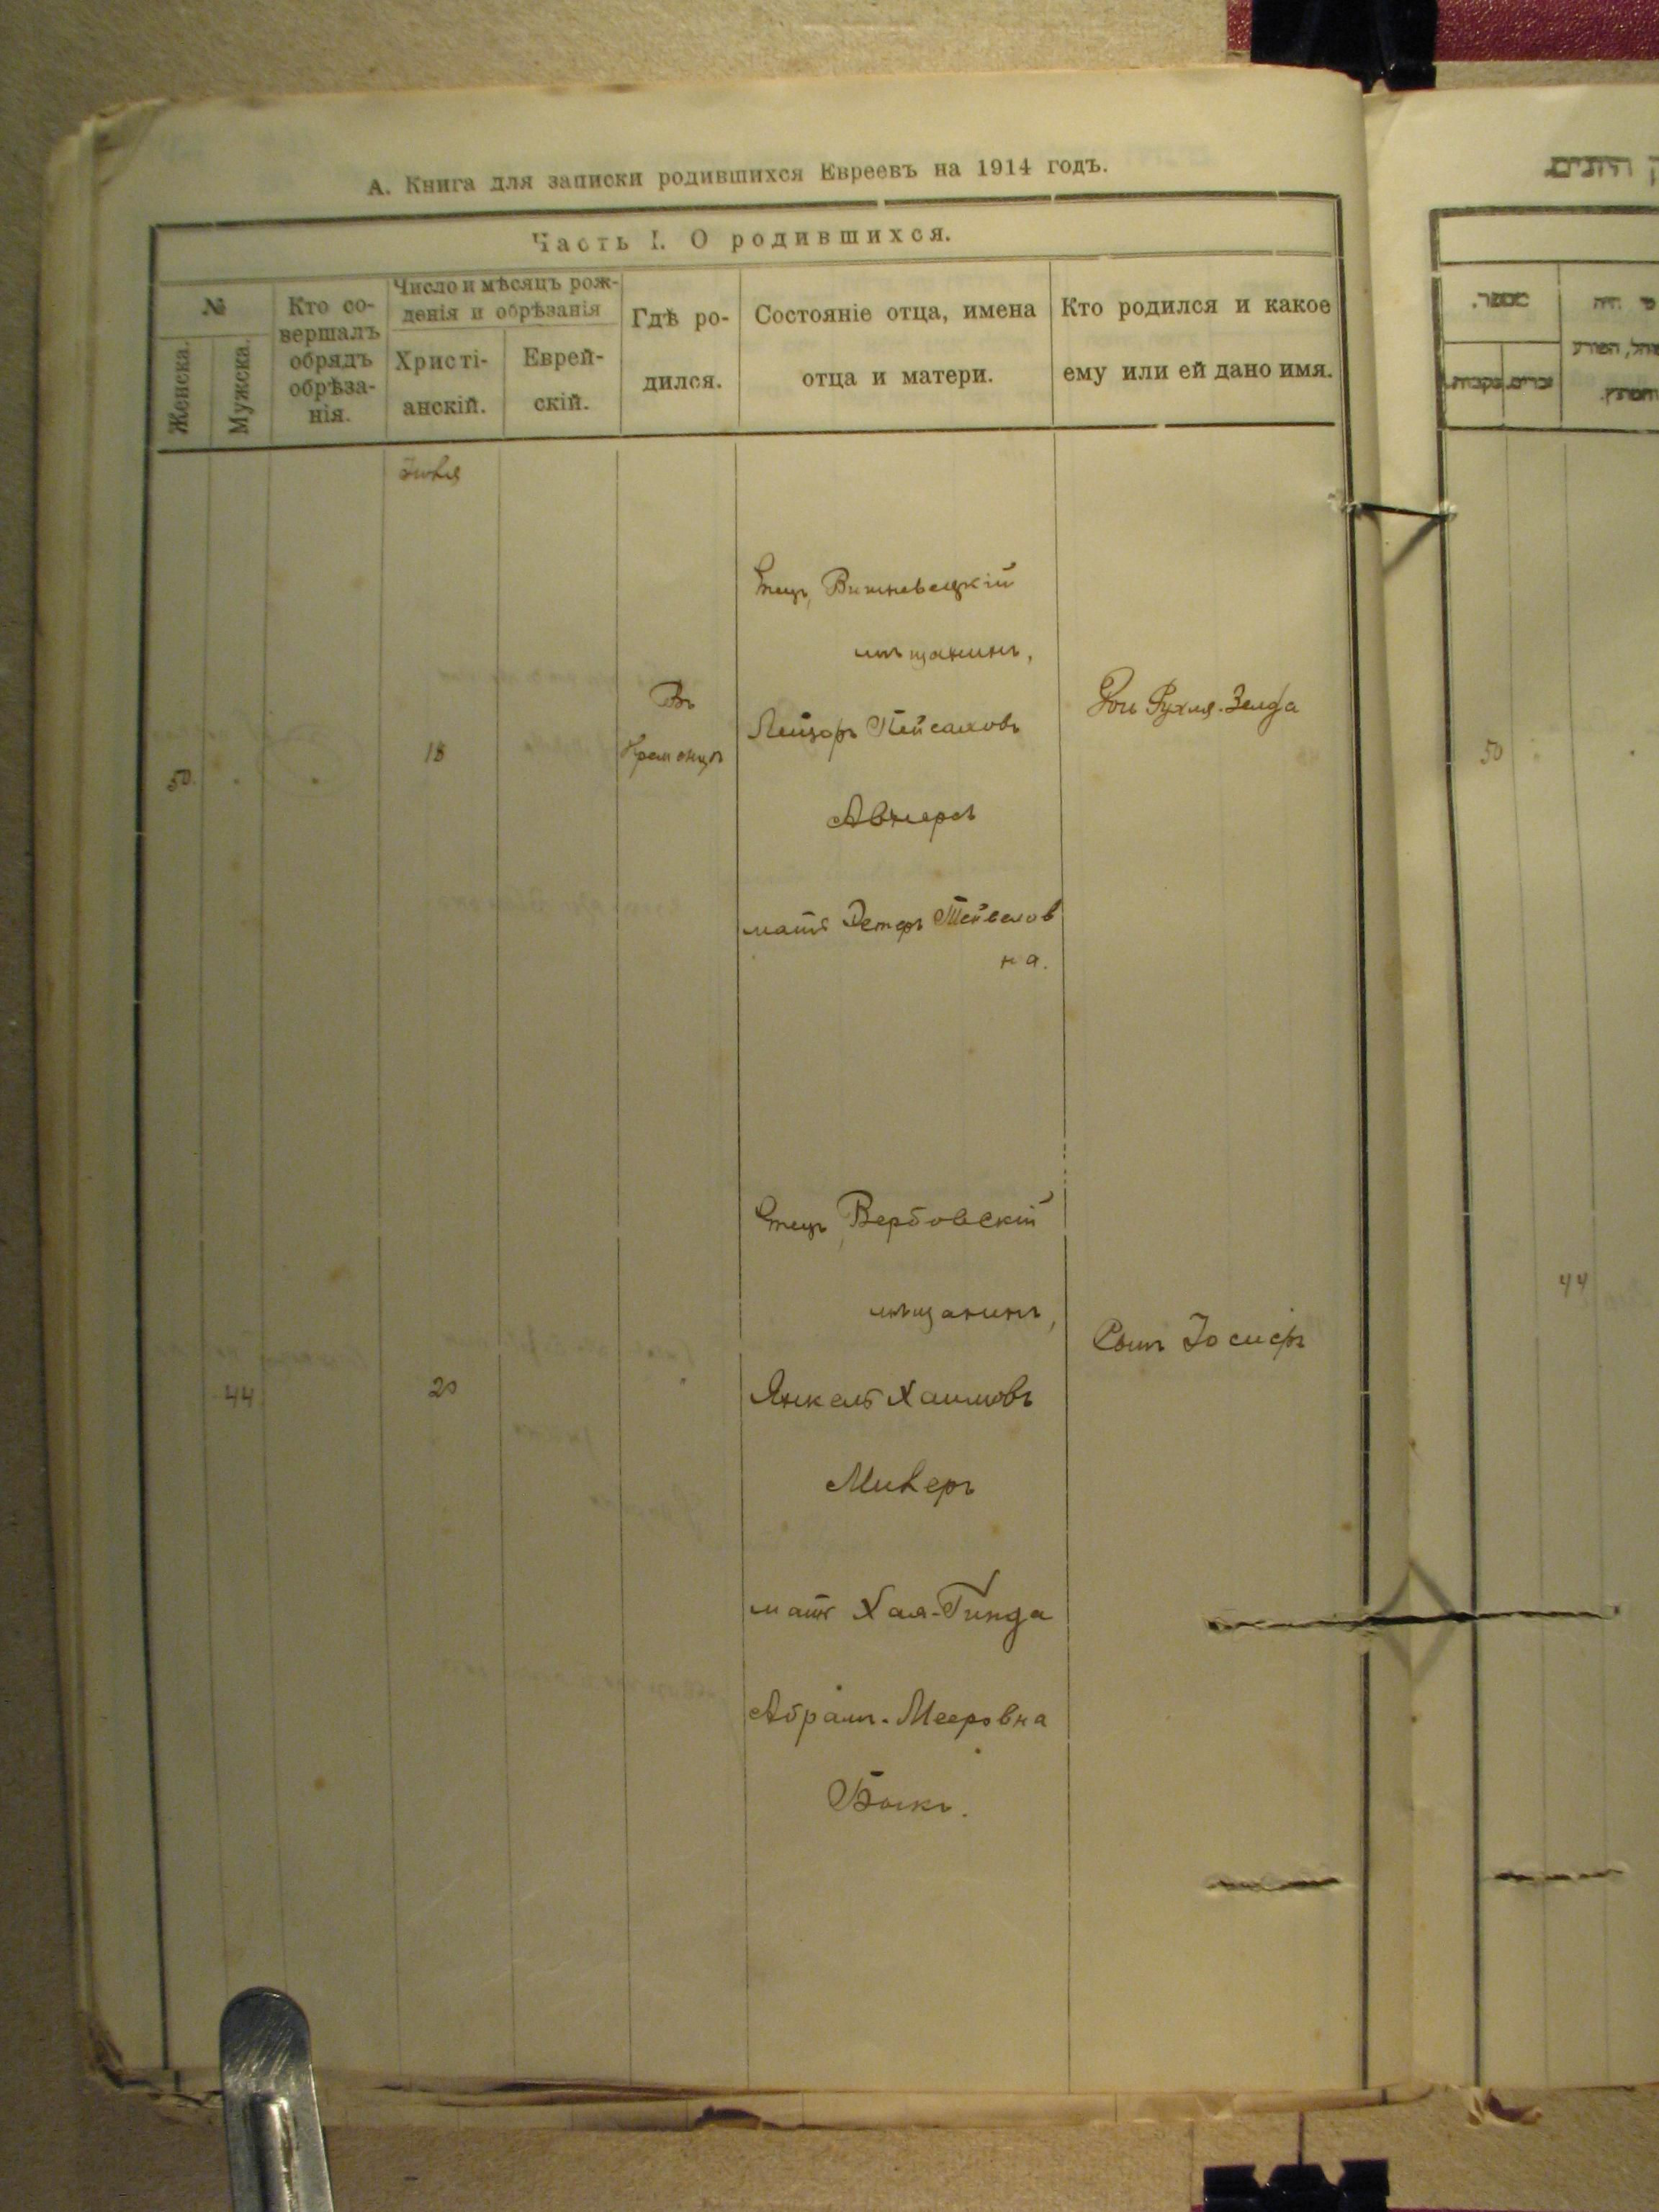 А. Книга для записки родившихся Евреевъ на 1914 годъ.
Часть I. О родившихся.
№
Женска.
Мужска.
Кто со-
вершалъ
обрядъ
обрѣза-
нія.
Число и мѣсяцъ рож-
денія и обрѣзанія
Христі-
анскій.
Еврей-
скій.
Гдѣ ро-
дился.
Состояніе отца, имена
отца и матери.
Кто родился и какое
ему или ей дано имя.
50.
18
Въ
Кременцѣ
Отецъ, Вишневецкій
мѣщанинъ,
Лейзоръ Пейсаховъ
Авнеръ
мать Эстеръ Тейвелов
на.
Дочь Рухля-Зелда
44
20
"
Отецъ, Вербовскій
мѣщанинъ,
Янкель Хаимовъ
Миверъ
мать Хая-Гинда
Абрамъ-Мееровна
Сынъ Іосифъ
מספר.
זכרים.
נקבות.
50
44